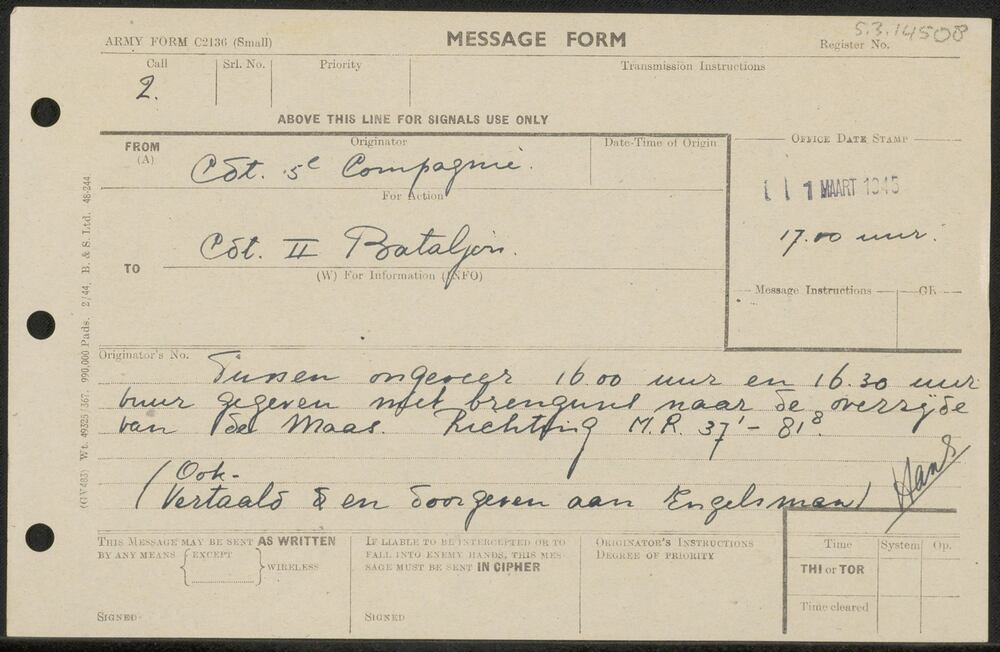 S.3.14508
ARMY FORM C2136 (Small) MESSAGE FORM Register No.
Call Srl. No. Priority Transmission Instructions
2.
ABOVE THIS LINE FOR SIGNALS USE ONLY
FROM (A) Originator Date-Time of Origin OFFICE DATE STAMP
Cdt. 5e Compagnie.
1 MAART 1945
For Action
17.00 uur.
Cdt. II Bataljon.
TO
(W) For Information (INFO)
Message Instructions GR
Originator's No.
Tussen ongeveer 16.00 uur en 16.30 uur
vuur gegeven met brenguns naar de overzijde
van de Maas. Richting M.R. 37' - 81⁸
(Ook-
Vertaald & en doorgeven aan Engelsman)
Hans
THIS MESSAGE MAY BE SENT AS WRITTEN
BY ANY MEANS EXCEPT WIRELESS
SIGNED
IF LIABLE TO BE INTERCEPTED OR TO
FALL INTO ENEMY HANDS, THIS MES-
SAGE MUST BE SENT IN CIPHER
SIGNED
ORIGINATOR'S INSTRUCTIONS
DEGREE OF PRIORITY
Time System Op.
THI or TOR
Time cleared
(GV483) Wt. 49325/367. 990,000 Pads. 2/44. B. & S. Ltd. 48-244.